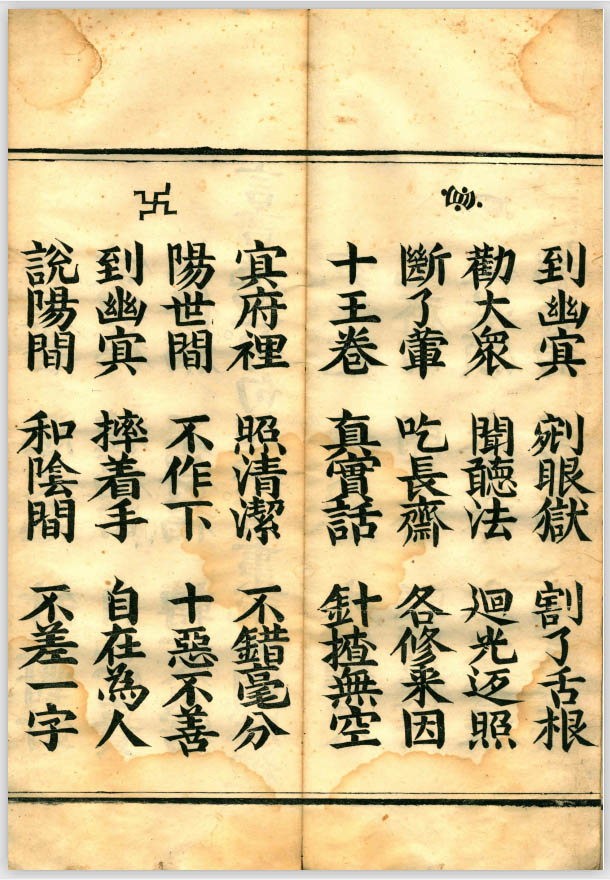 到幽㝠 剜眼獄 割了舌根
勸大衆 聞聽法 迴光返照
斷了葷 吃長齋 各修來因
十王卷 真實話 針揸無空
卍
㝠府裡 照清潔 不錯毫分
陽世間 不作下 十惡不善
到幽㝠 摔着手 自在為人
說陽間 和陰間 不差一字